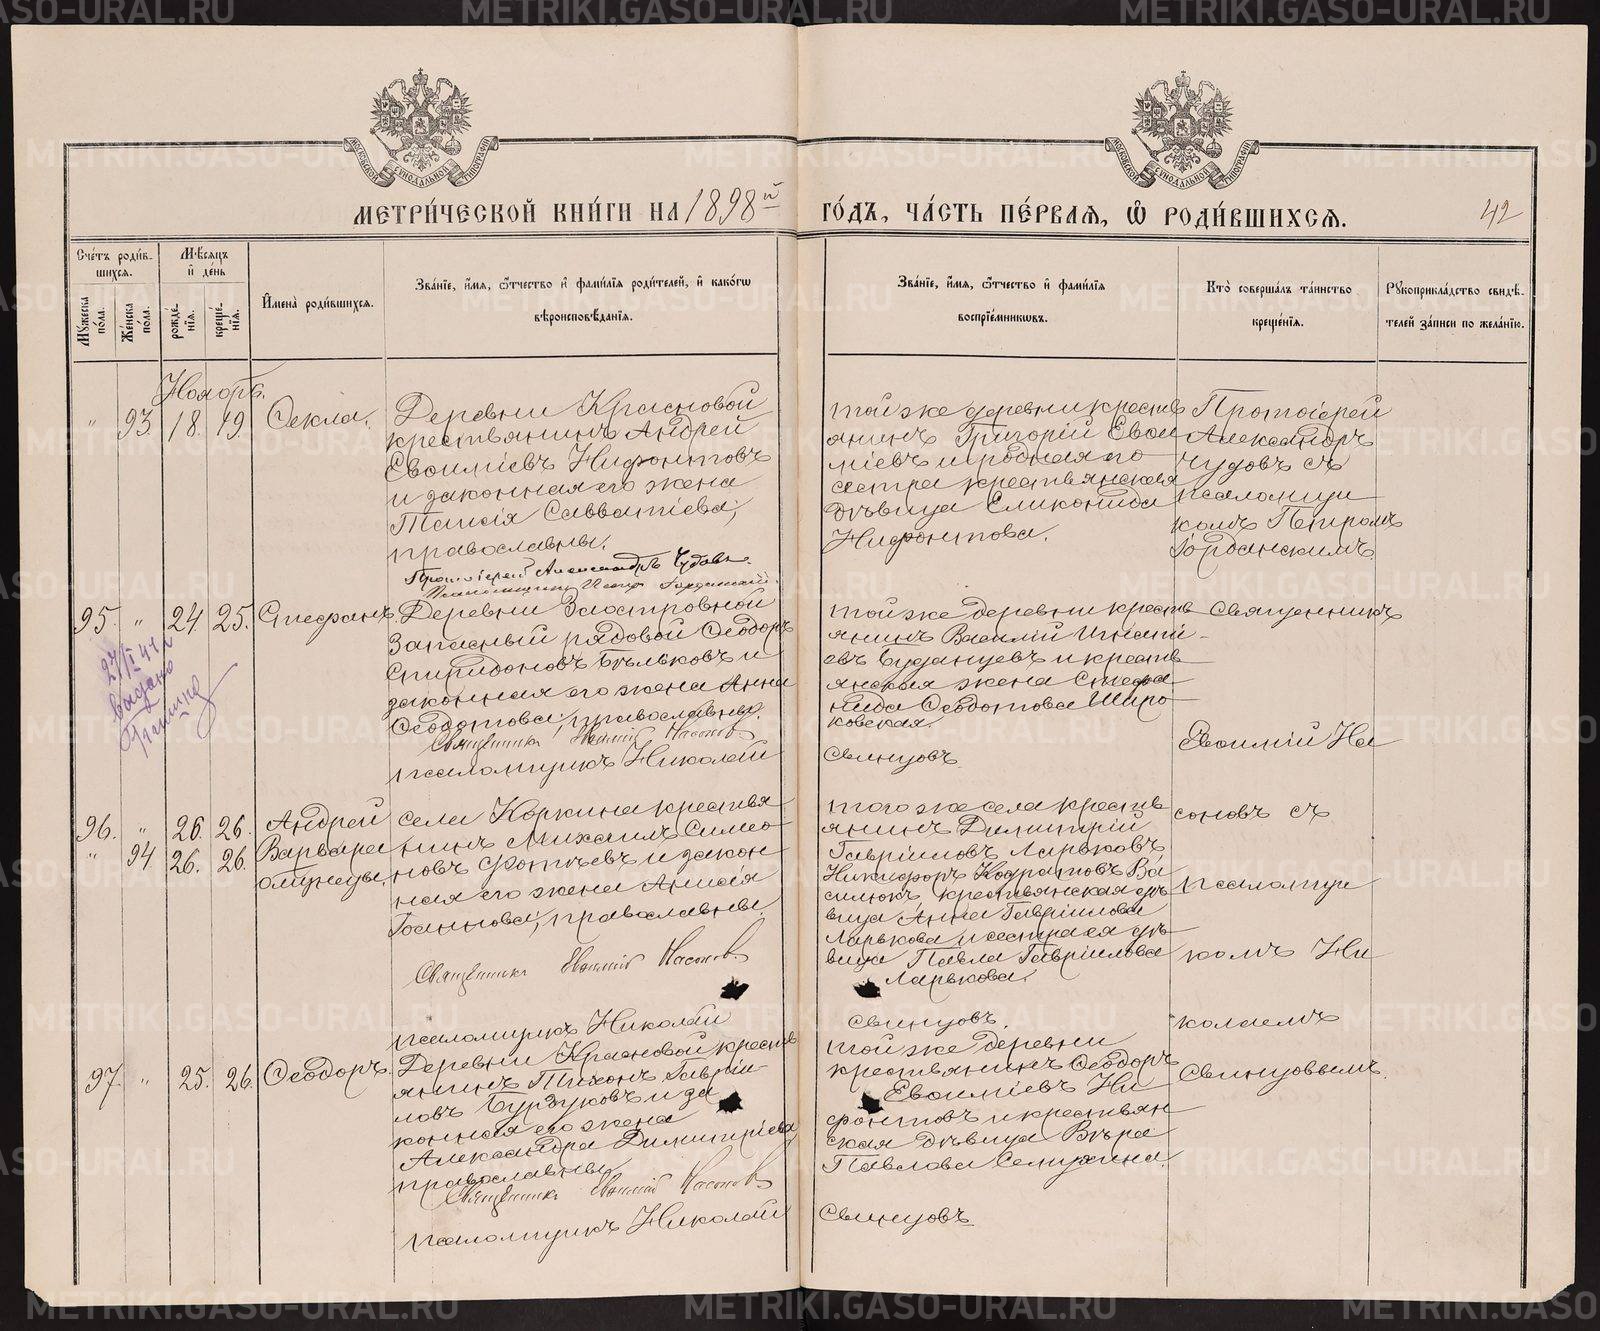 МЕТРИ́ЧЕСКОЙ КНИ́ГИ НА 1898й ГО́ДЪ, ЧА́СТЬ ПЕ́РВАѦ, Ѽ РОДИ́ВШИХСѦ.
42
Сче́тъ роди́вшихся.
Мѣ́сяцъ и де́нь
Му́жеска по́ла.
Же́нска по́ла.
рожде́нїя.
креще́нїя.
Имена̀ роди́вшихся.
Зва́нїе, и́мя, ѻ҆́тчество и҆ фами́лїя роди́телей, и҆ како́гѡ
вѣроисповѣ́данїя.
Зва́нїе, и́мя, ѻ҆́тчество и҆ фами́лїя
воспрїе́мникѡвъ.
Кто̀ соверша́лъ та́инство
креще́нїя.
Рꙋкоприкла́дство свидѣ́-
телей за́писи по жела́нїю.
Ноябрь.
" 93. 18. 19. Ѳекла.
Деревни Красновой
крестьянинъ Андрей
Евѳиміевъ Нифонтовъ
и законная его жена
Таисія Савватіева,
православны.
Протоіерей Александръ Чудовъ.
Псаломщикъ Петръ Іорданскій.
той же деревни кресть
янинъ Григорій Евѳи
міевъ и родная его
сестра крестьянская
дѣвица Еликонида
Нифонтова.
Протоіерей
Александръ
Чудовъ съ
псаломщи
комъ Петромъ
Іорданскимъ
95. " 24. 25. Стефанъ.
27/I 44 г
выдано
Деревни Заостровной
Запасный рядовой Ѳеодоръ
Спиридоновъ Бѣльковъ и
законная его жена Анна
Ѳеодотова, православны.
Священникъ Евѳимій Насоновъ
псаломщикъ Николай
той же деревни кресть
янинъ Василій Игнаті-
евъ Буданцевъ и кресть
янская жена Стефа
нида Ѳеодотова Широ
ковская.
Свинцовъ.
Священникъ
Евѳимій На
96. " 26. 26. Андрей
" 94 26. 26. Варвара
близнецы.
села Коркина крестья
нинъ Михаилъ Симео
новъ Фотѣевъ и закон
ная его жена Анисія
Іоаннова, православны.
Священникъ Евѳимій Насоновъ
псаломщикъ Николай
того же села кресть
янинъ Димитрій
Гавріиловъ Ларьковъ
Никифоръ Кодратовъ Ва
силюкъ, крестьянская дѣ
вица Анна Гавріилова
Ларькова и сестра ея дѣ
вица Павла Гавріилова
Ларькова.
Свинцовъ.
соновъ съ
псаломщи
комъ Ни
колаемъ
Свинцовымъ.
97. " 25. 26. Ѳеодоръ.
Деревни Красновой кресть
янинъ Тихонъ Гавріи-
ловъ Бурзуковъ и за
конная его жена
Александра Димитріева
православны.
Священникъ Евѳимій Насоновъ
псаломщикъ Николай
той же деревни
крестьянинъ Ѳеодоръ
Евѳиміевъ Ни
фонтовъ и крестьян
ская дѣвица Вѣра
Павлова Селихина.
Свинцовъ.
METRIKI.GASO-URAL.RU